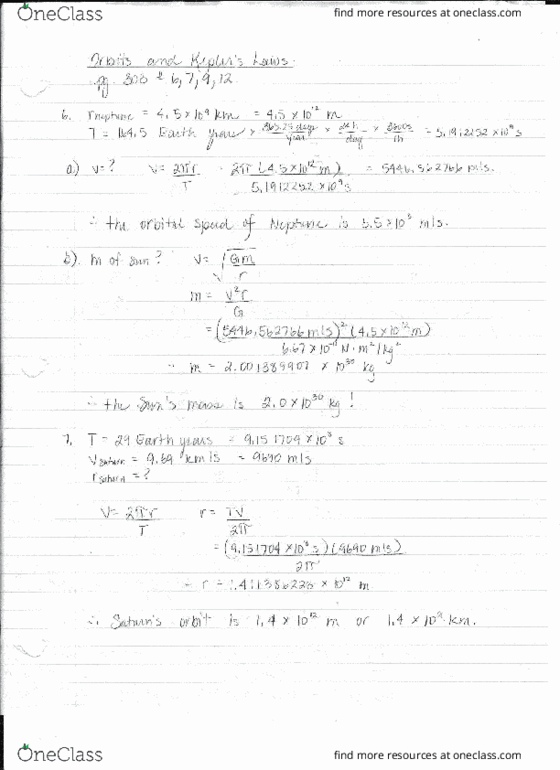 OneClass
find more resources at oneclass.com
Orbits and Kepler's Laws.
pg 303 # 6, 7, 9, 12.
6. rneptune = 4.5 × 10⁹ km = 4.5 × 10¹² m
T = 164.5 Earth years × 365.25 days/year × 24h/day × 3600s/h = 5.1912252 × 10⁹ s
a) v = ? v = 2πr/T = 2π(4.5 × 10¹² m)/5.1912252 × 10⁹ s = 5446.562766 m/s.
∴ the orbital speed of Neptune is 5.5 × 10³ m/s.
b) m of sun? v = √Gm/r
m = v²r/G
= (5446.562766 m/s)² (4.5 × 10¹² m)/6.67 × 10⁻¹¹ N·m²/kg²
∴ m = 2.001389907 × 10³⁰ kg
∴ the Sun's mass is 2.0 × 10³⁰ kg!
7. T = 29 Earth years = 9.151704 × 10⁸ s
vsaturn = 9.69 km/s = 9690 m/s
rsaturn = ?
v = 2πr/T r = Tv/2π
= (9.151704 × 10⁸ s)(9690 m/s)/2π
∴ r = 1.411386228 × 10¹² m
∴ Saturn's orbit is 1.4 × 10¹² m or 1.4 × 10⁹ km.
OneClass
find more resources at oneclass.com